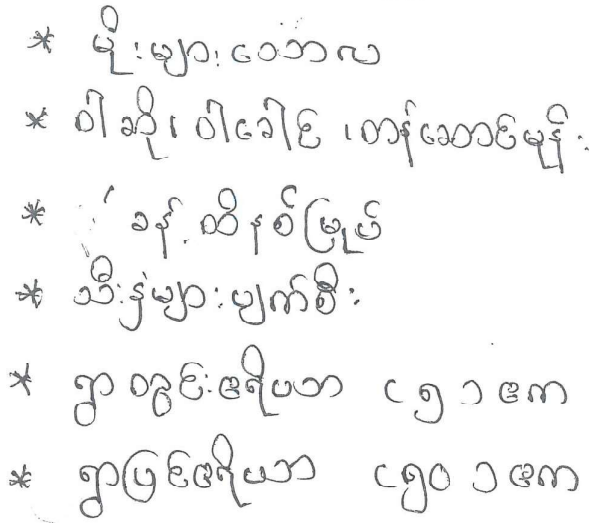 * မိုးများသောလ
* ဝါဆို၊ ဝါခေါင် ၊တန်ဆောင်မုန်း
* ခန့်.ထိနစ်မြုပ်
* သီးနှံများပျက်စီး
* ရွာတွင်းဧရိယာ (၅) ဧက
* ရွာပြင်ဧရိယာ (၅၀) ဧက